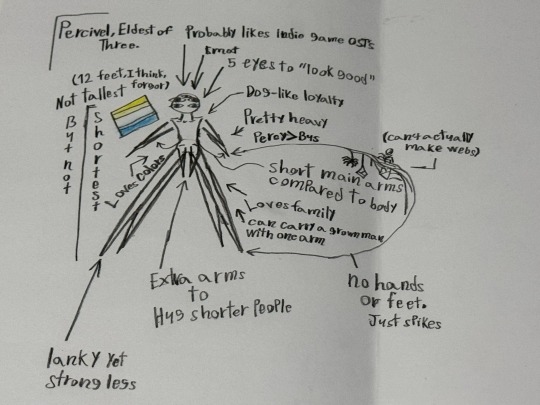 Percivel, Eldest of
Three.
Probably likes Indie game OSTs
Emot
5 eyes to "look good"
(12 feet, I think,
forgor)
Not tallest
But not
Shortest
Dog-like loyalty
Pretty heavy
Percy>Bys
(can actually
make webs)
Loves colors
short main arms
compared to body
Loves family
can carry a grown man
with one arm
Extra arms
to
Hug shorter People
no hands
or feet.
Just spikes
lanky yet
strong less